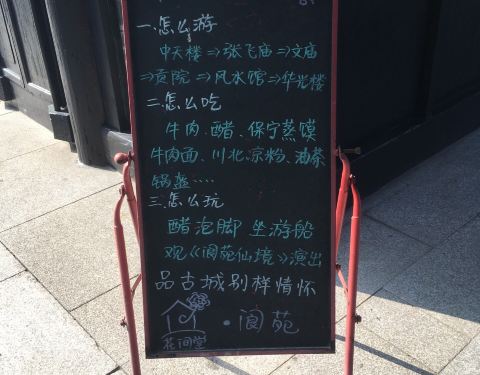 一.怎么游
中天楼⇒张飞庙⇒文庙
⇒贡院⇒风水馆⇒华光楼
二.怎么吃
牛肉.醋、保宁蒸馍
牛肉面、川北凉粉、油茶
锅盔....
三.怎么玩
醋泡脚 坐游船
观《阆苑仙境》演出
品古城别样情怀
花间堂 · 阆苑